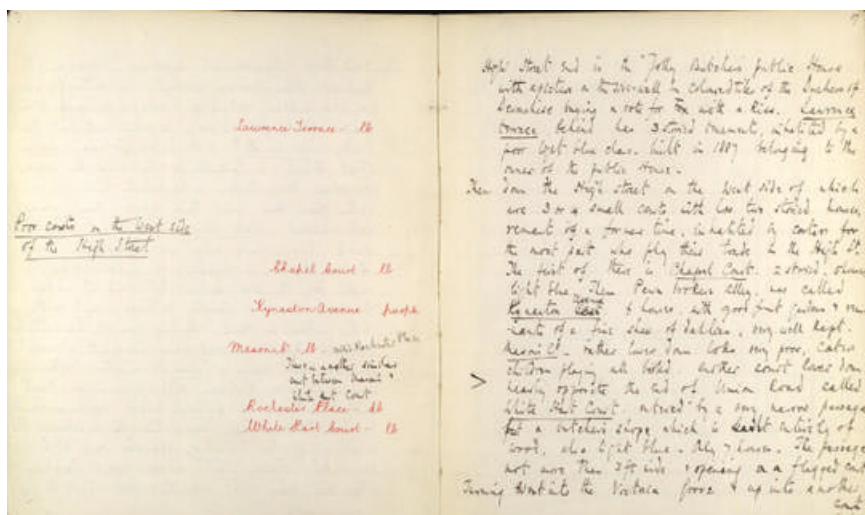 Lawrence Terrace - lb
Poor courts on the West side
of the High Street
Chapel Court - lb
Kynaston Avenue - purple
lb -
There is another similar
court between &
White Hart Court
Rochester Place - lb
White Hart Court - lb
High Street end is the "Jolly Butchers" public House
with a picture on the overall in coloured tiles of the Duchess of
Devonshire buying a vote for Fox with a Kiss. Lawrence
terrace behind has 3 storied tenements, inhabited by a
poor light blue class. built in 1887 belonging to the
owner of the public House.
Then down the High Street on the West side of which
are 3 or 4 small courts with low two storied houses,
remnant of a former time, inhabited by costers for
the most part who ply their trade in the High St.
The first of these is Chapel Court. 2 storied,
light blue. Then brokers alley, now called
Kynaston 6 houses, with good front gardens &
of a fine show of dahlias, very well kept.
rather lower down. looks very poor,
children playing about. another court lower down
nearly opposite the end of Union Road called
White Hart Court, entered by a very narrow passage
by a butchers shop, which is built entirely of
wood, also light blue. Only 7 houses. The passage
not more than 3 ft wide & opening on a flagged court
Turning West into the Victoria Grove & up into another
Court